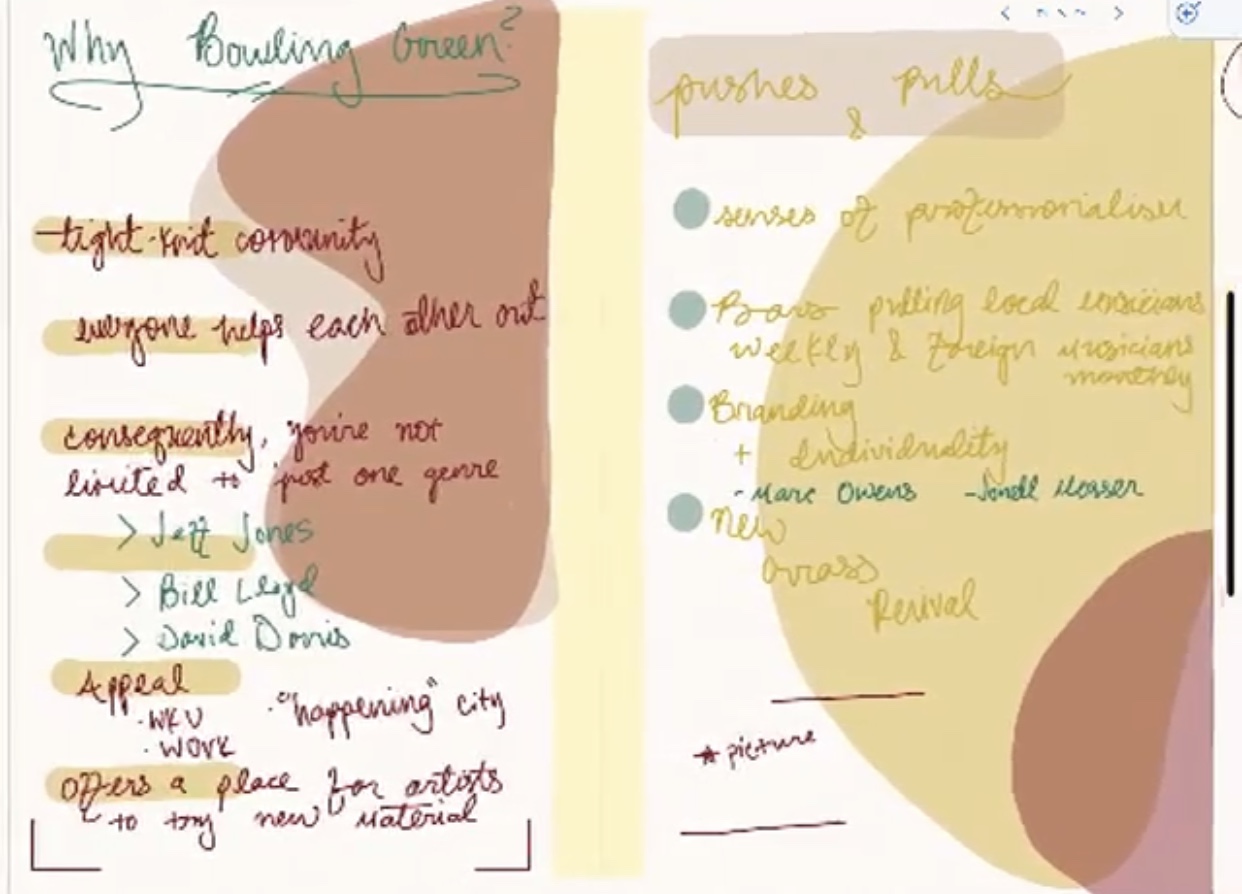 Why Bowling Green?
tight-knit community
everyone helps each other out
consequently, you're not
limited to just one genre
> Jeff Jones
> Bill Lloyd
> David Davis
Appeal
· WKU
· work
· "happening" city
offers a place for artists
to try new material
pushes & pulls
senses of professionalism
Bars pulling local musicians
weekly & foreign musicians
monthly
Branding
+ individuality
- Marc Owens - Jonell Mosser
New
Grass
Revival
* picture